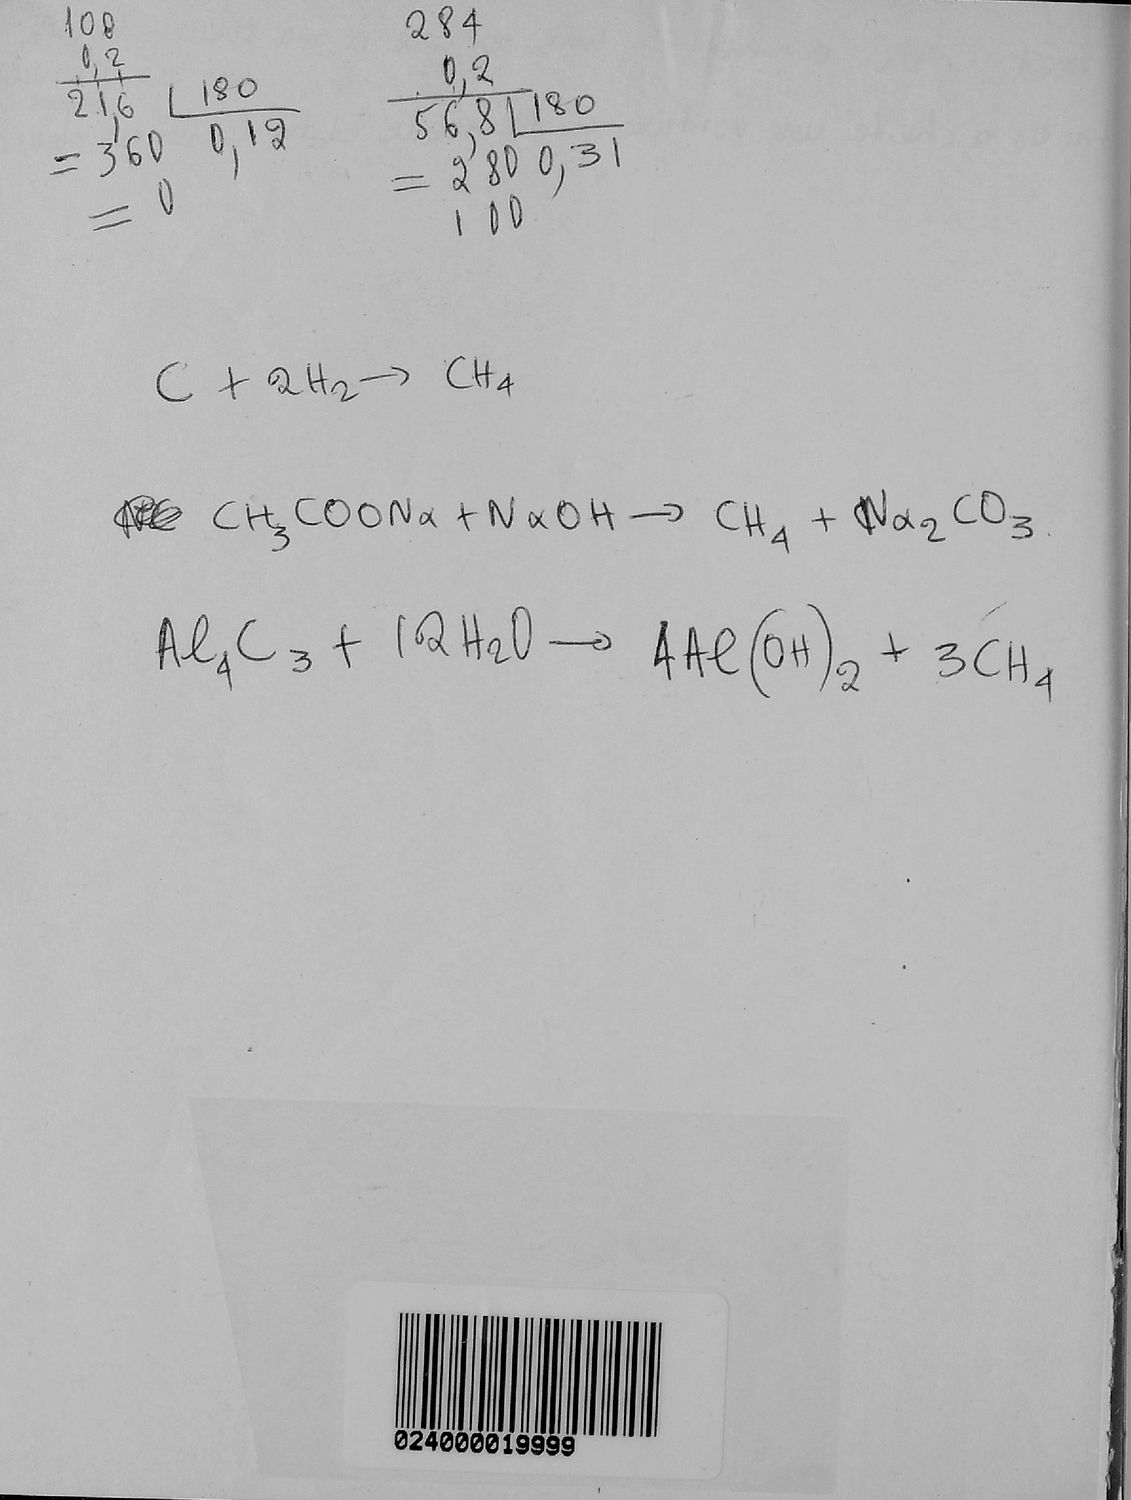 108 284
0,2 0,2
21,6 180 56,8 180
= 360 0,12 = 280 0,31
= 0 100
C + 2H₂ → CH₄
CH₃COONa + NaOH → CH₄ + Na₂CO₃
Al₄C₃ + 12H₂O → 4Al(OH)₂ + 3CH₄
024000019999